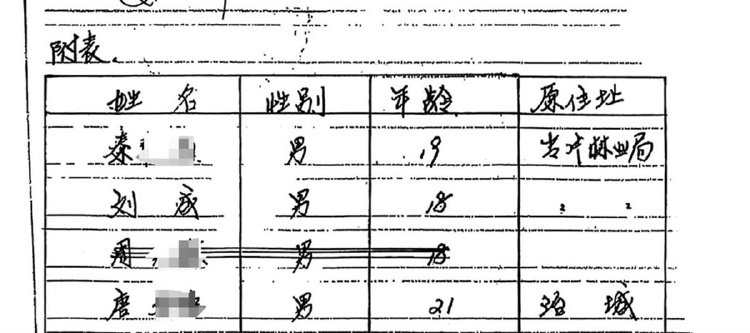 附表.
姓 名 性别 年龄 原住址
秦 男 19 林业局
刘 成 男 18 〃 〃
周 男 18
唐 男 21 城